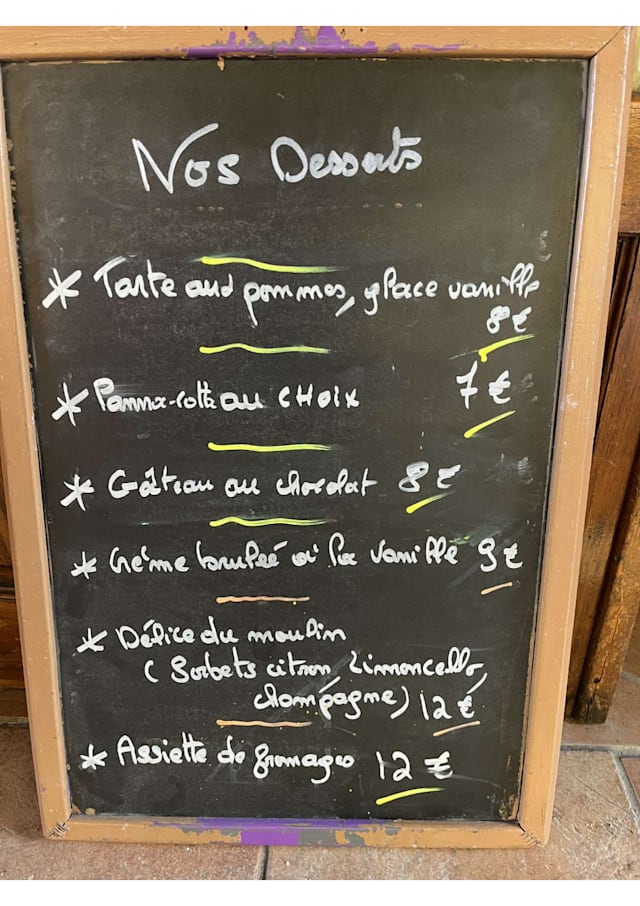 Nos Desserts
* Tarte aux pommes, glace vanille
8€
* Panna-cotta au CHOIX 7€
* Gâteau au chocolat 8€
* Crème brulée à la Vanille 9€
* Délice du moulin
( Sorbets citron, Limoncello,
champagne) 12€
* Assiette de fromages 12€